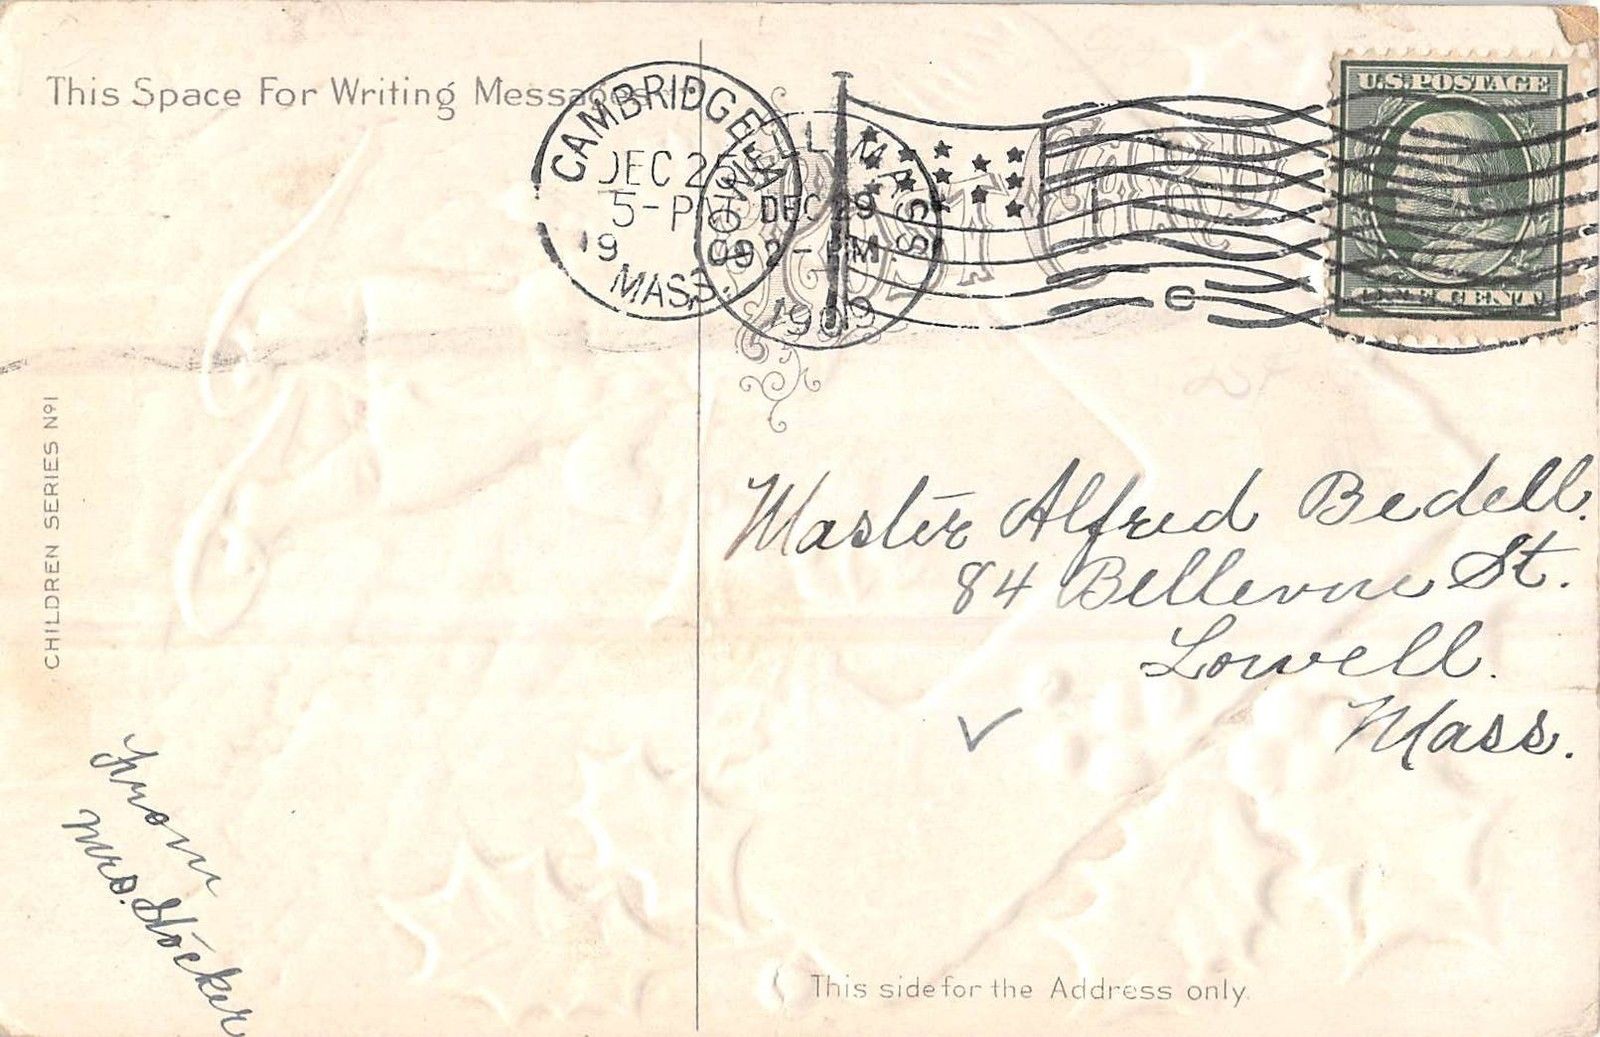 This Space For Writing Messages
CAMBRIDGE
DEC 2
5-PM
19 09
MASS.
LOWELL, MASS.
DEC 29
2-PM
1909
POST CARD
C
U.S. POSTAGE
ONE CENT
CHILDREN SERIES Nº1
Master Alfred Bedell.
84 Bellevue St.
Lowell.
Mass.
From
Mrs. Stocker
This side for the Address only.